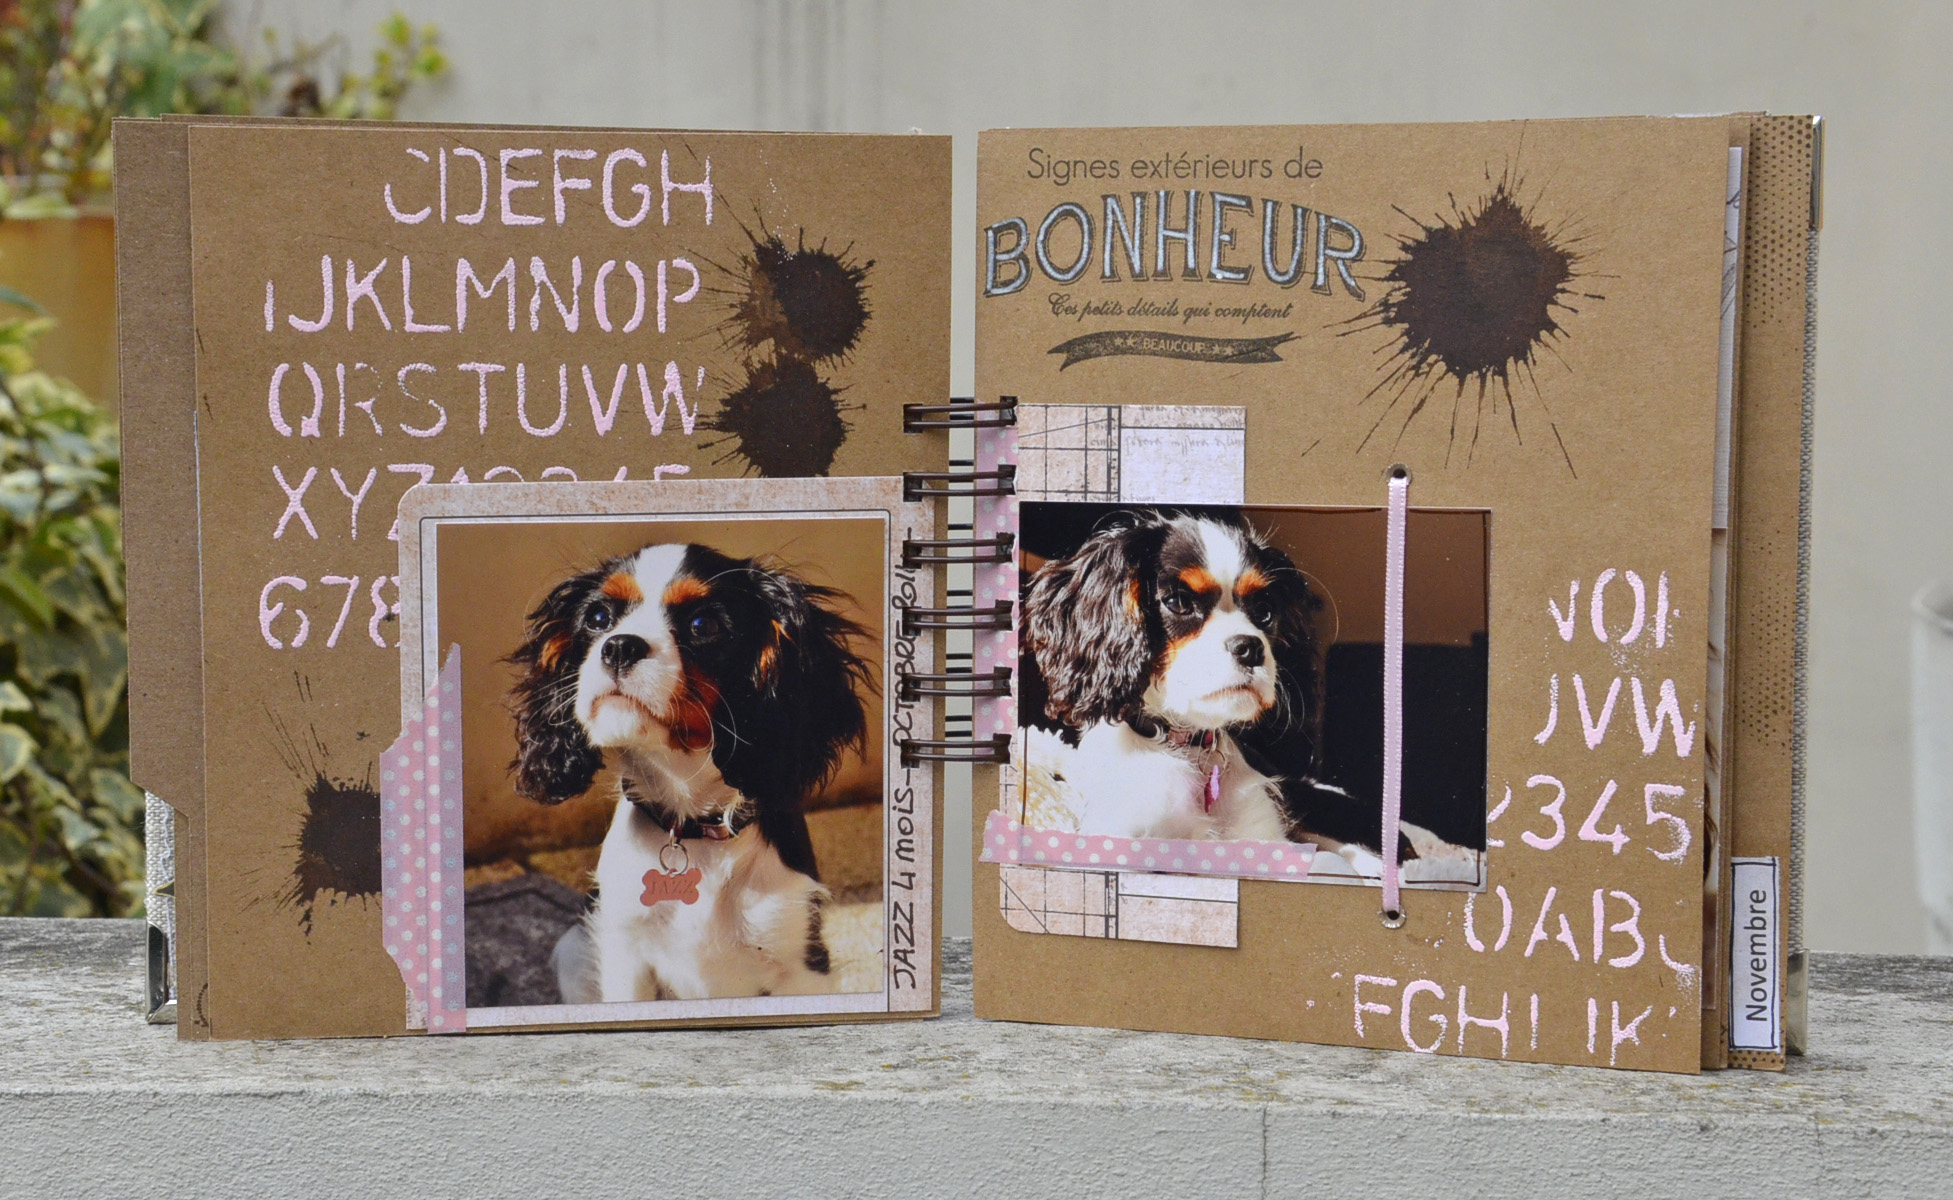 CDEFGH
IJKLMNOP
QRSTUVW
XYZ12345
678
JAZZ
JAZZ 4 MOIS - OCTOBRE 2011
Signes extérieurs de
BONHEUR
Ces petits détails qui comptent
BEAUCOUP
UVW
2345
0AB
FGHIJK
Novembre